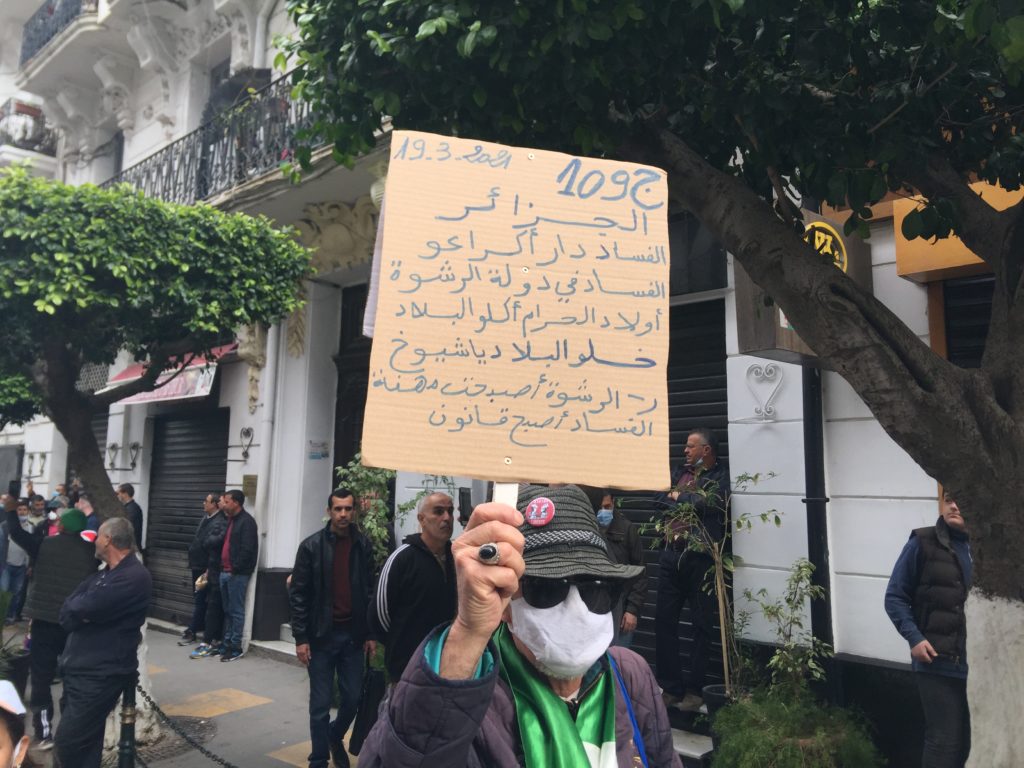 19-3-2021
ج109
الجزائر
الفساد دار أكراعو
الفساد في دولة الرشوة
أولاد الحرام أكلو البلاد
خلو البلاد ياشيوخ
الرشوة أصبحت مهنة
الفساد أصبح قانون